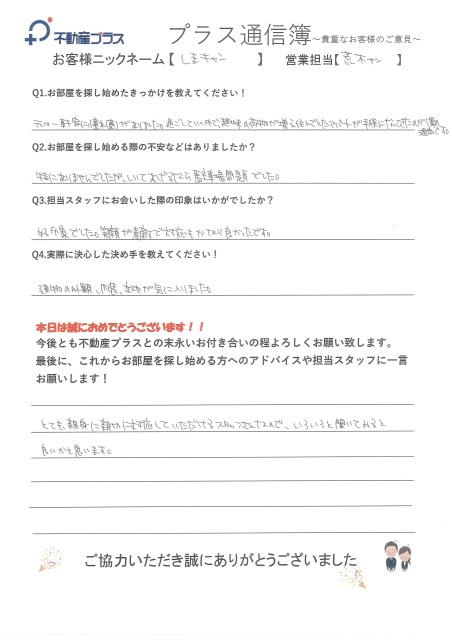 不動産プラス プラス通信簿~貴重なお客様のご意見~
お客様ニックネーム【しまキャン】 営業担当【荒木サン】
Q1.お部屋を探し始めたきっかけを教えてください!
Q2.お部屋を探し始める際の不安などはありましたか?
特にありませんでしたが、しいてあげるなら駐車場問題でした。
Q3.担当スタッフにお会いした際の印象はいかがでしたか?
好印象でした。笑顔が素敵で対応もかなり良かったです。
Q4.実際に決心した決め手を教えてください!
建物の外観、内装、立地が気に入りました。
本日は誠におめでとうございます!!
今後とも不動産プラスとの末永いお付き合いの程よろしくお願い致します。
最後に、これからお部屋を探し始める方へのアドバイスや担当スタッフに一言
お願いします!
とても親身に親切に対応していただけるスタッフさんなので、いろいろと聞いてみると
良いかと思います。
ご協力いただき誠にありがとうございました